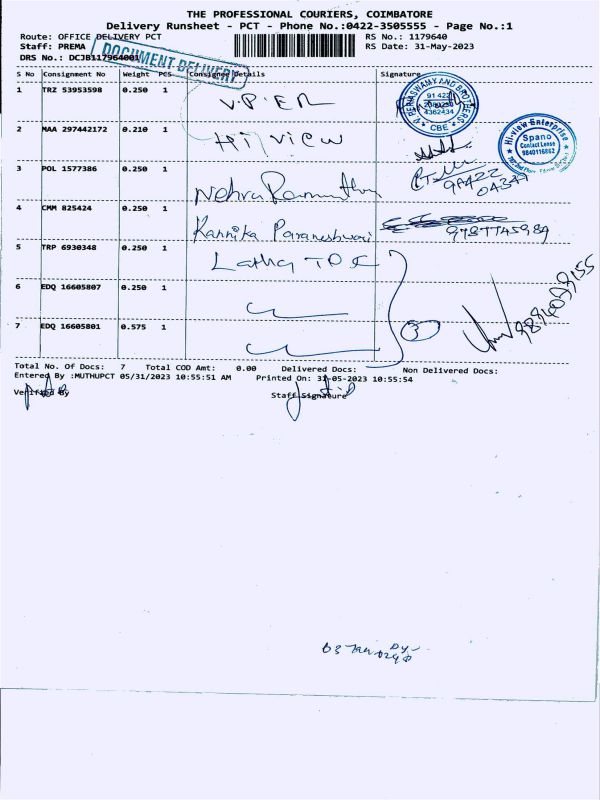 THE PROFESSIONAL COURIERS, COIMBATORE
Delivery Runsheet - PCT - Phone No.:0422-3505555 - Page No.:1
Route: OFFICE DELIVERY PCT RS No.: 1179640
Staff: PREMA RS Date: 31-May-2023
DRS No.: DCJB117964001
DOCUMENT DELIVERY
S No Consignment No Weight PCS Consignee Details Signature
1 TRZ 53953598 0.250 1 V.P.ER
V PERIASWAMY AND BROTHERS
91 422
4362434
CBE
2 MAA 297442172 0.210 1 Hi view
Hi-view Enterprise
Spano
Contact Lense
9840116862
3 POL 1577386 0.250 1 Nehru
4 CMM 825424 0.250 1 Kannika Parameshwari 9787745989
5 TRP 6930348 0.250 1 Latha TPC
6 EDQ 16605807 0.250 1
7 EDQ 16605801 0.575 1 3
Total No. Of Docs: 7 Total COD Amt: 0.00 Delivered Docs: Non Delivered Docs:
Entered By :MUTHUPCT 05/31/2023 10:55:51 AM Printed On: 31-05-2023 10:55:54
Verified By Staff Signature